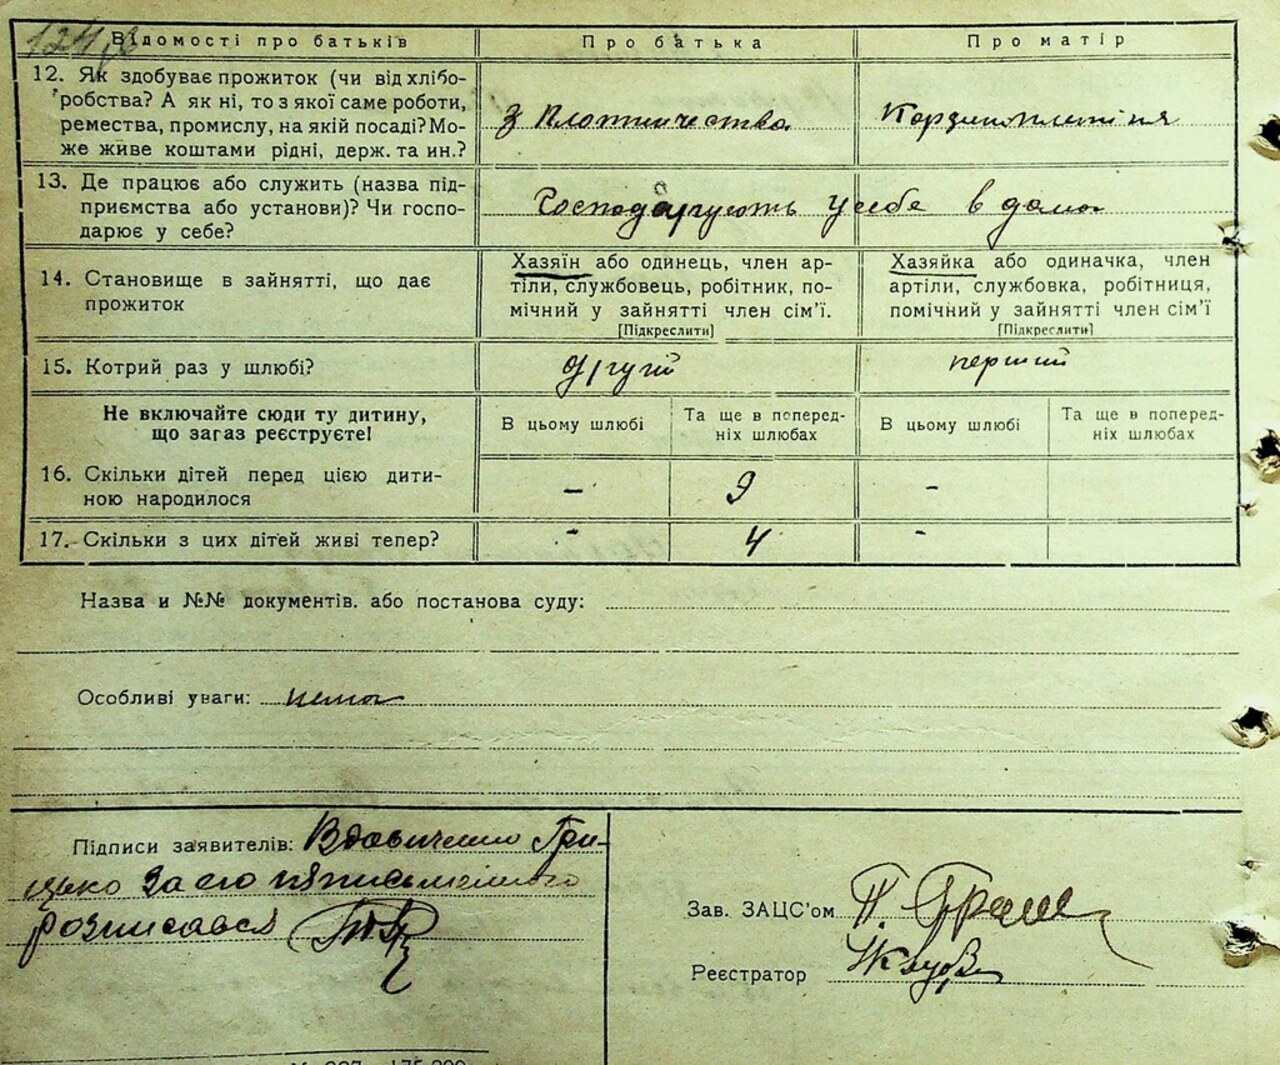 124
Відомості про батьків
Про батька
Про матір
12. Як здобуває прожиток (чи від хлібо-
робства? А як ні, то з якої саме роботи,
ремества, промислу, на якій посаді? Мо-
же живе коштами рідні, держ. та ин.?
з Плотничества
Корзиноплетіня
13. Де працює або служить (назва під-
приємства або установи)? Чи госпо-
дарює у себе?
Господарують у себе в дома
14. Становище в зайнятті, що дає
прожиток
Хазяїн або одинець, член ар-
тілі, службовець, робітник, по-
мічний у зайнятті член сім’ї.
[Підкреслити]
Хазяйка або одиначка, член
артіли, службовка, робітниця,
помічний у зайнятті член сім’ї
[Підкреслити]
15. Котрий раз у шлюбі?
другий
перший
Не включайте сюди ту дитину,
що загаз реєструєте!
В цьому шлюбі
Та ще в поперед-
ніх шлюбах
В цьому шлюбі
Та ще в поперед-
ніх шлюбах
16. Скільки дітей перед цією дити-
ною народилося
–
9
–
17. Скільки з цих дітей живі тепер?
-
4
-
Назва и №№ документів. або постанова суду:
Особливі уваги: нема
Підписи заявителів: Вдовиченко Гри-
цько за его няписьменного
розписався
Зав. ЗАЦС’ом П.
Реєстратор